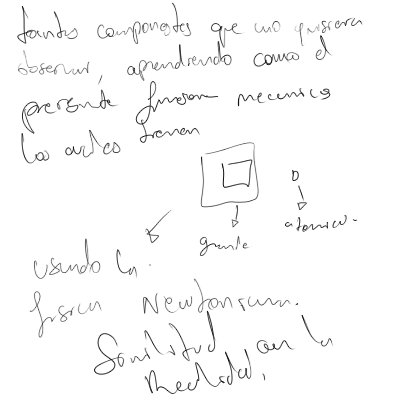 tantos componentes que uno quisiera
observar, aprendiendo como el
presente
los cuales tienen
grande
atomico.
usando la
fisica Newtoniana.
Similitud con la
Realidad.